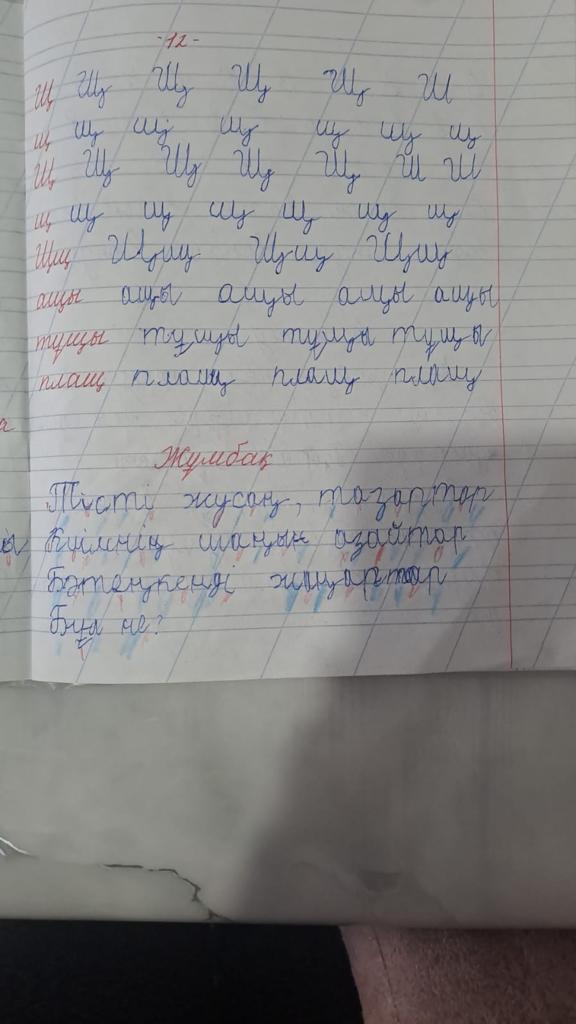 -12-
Щ Щ Щ Щ Щ Ш
щ щ щ щ щ щ щ
Щ Щ Щ Щ Щ Ш Ш
щ щ щ щ щ щ щ
Щщ Щщщ Щщщ Щщщ
ащы ащы ащы ащы ащы
тұщы тұщы тұщы тұщы
плащ плащ плащ плащ
Жұмбақ
Тісті жусаң, тазартар
Киімнің шаңын азайтар
Бәтеңкенді жаңартар
Бұл не?